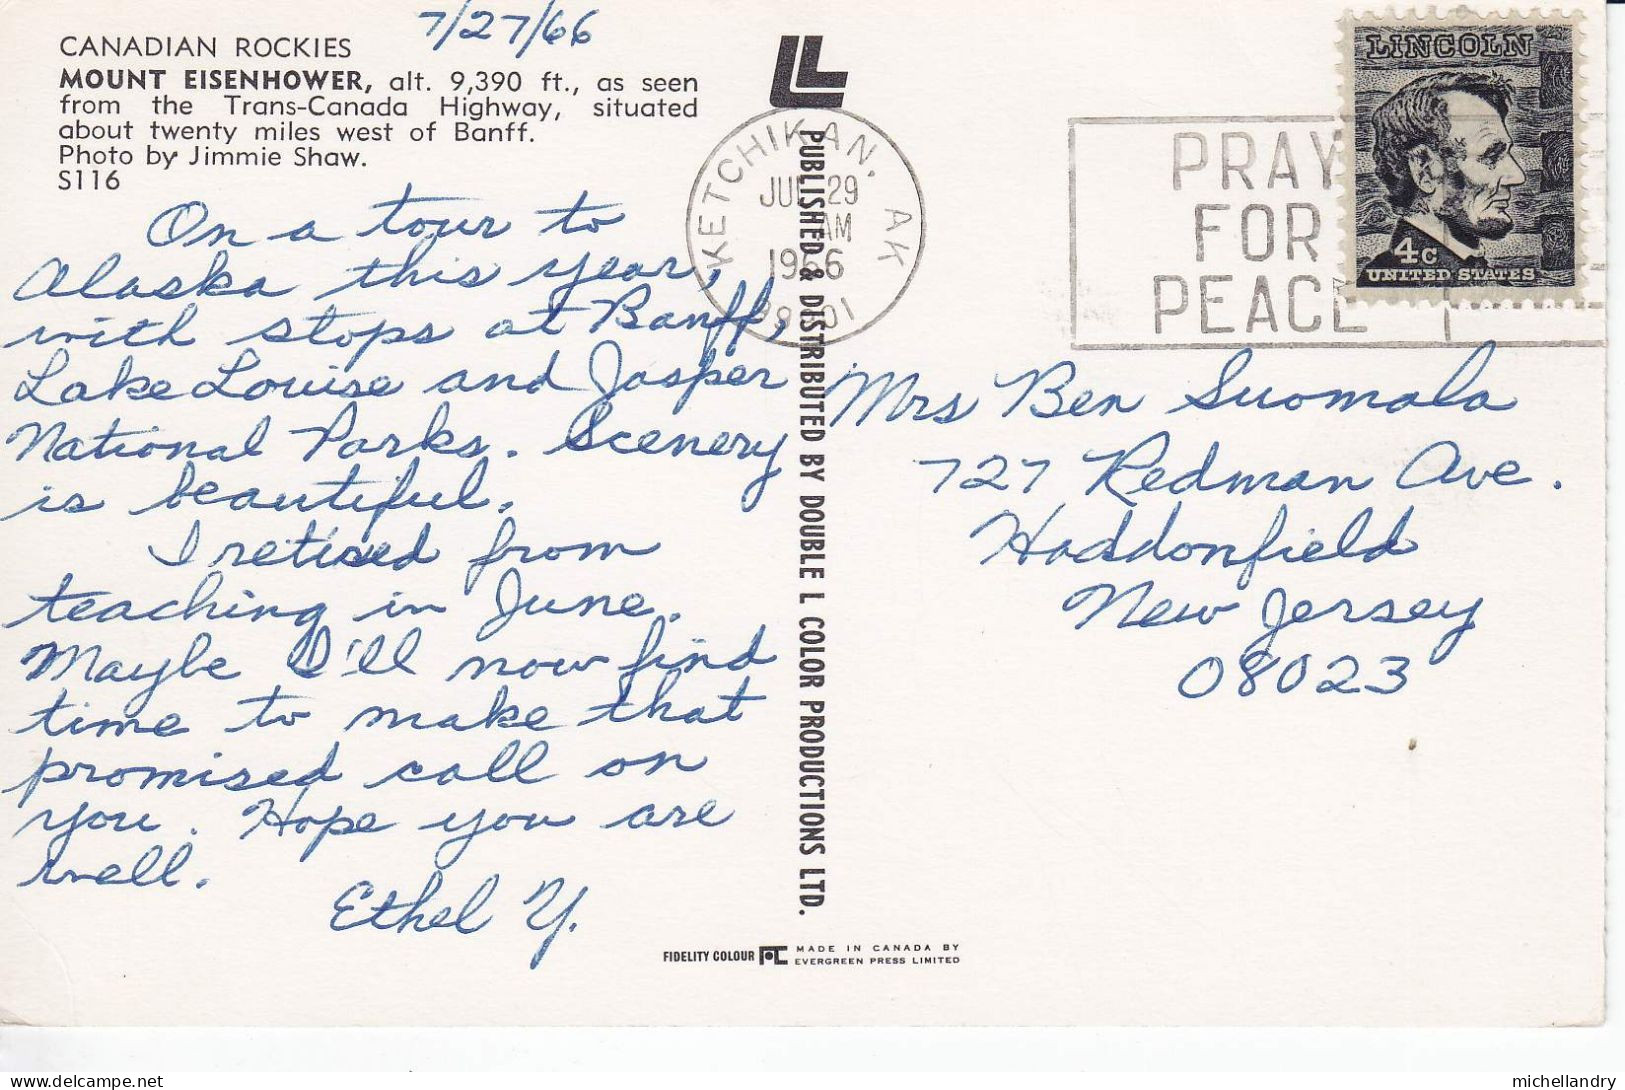 7/27/66
CANADIAN ROCKIES
MOUNT EISENHOWER, alt. 9,390 ft., as seen
from the Trans-Canada Highway, situated
about twenty miles west of Banff.
Photo by Jimmie Shaw.
S116
On a tour to
Alaska this year,
with stops at Banff,
Lake Louise and Jasper
National Parks. Scenery
is beautiful.
I retired from
teaching in June.
Maybe I'll now find
time to make that
promised call on
you. Hope you are
well.
Ethel Y.
LL
PUBLISHED & DISTRIBUTED BY DOUBLE L COLOR PRODUCTIONS LTD.
KETCHIKAN, AK
JUL 29
AM
1966
PRAY
FOR
PEACE
LINCOLN
4c
UNITED STATES
Mrs Ben Suomala
727 Redman Ave.
Haddonfield
New Jersey
08023
FIDELITY COLOUR
MADE IN CANADA BY
EVERGREEN PRESS LIMITED
michellandry